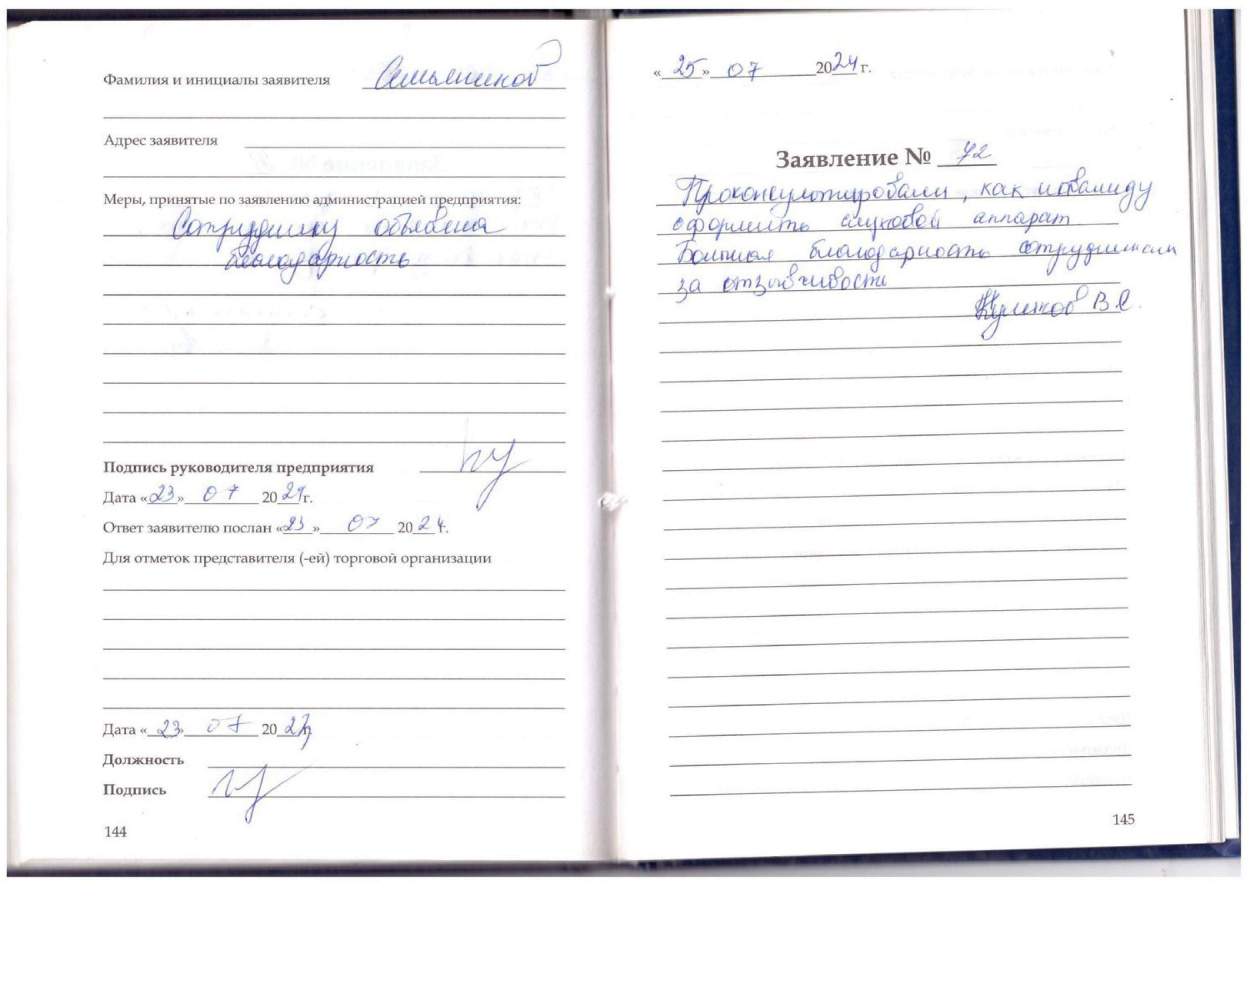 Фамилия и инициалы заявителя Семьянинов
Адрес заявителя
Меры, принятые по заявлению администрацией предприятия:
Сотруднику объявлена
благодарность
Подпись руководителя предприятия
Дата «23» 07 2024 г.
Ответ заявителю послан «23» 07 2024 г.
Для отметок представителя (-ей) торговой организации
Дата «23» 07 2024 г.
Должность
Подпись
144
«25» 07 2024 г.
Заявление № 72
Проконсультировали, как инвалиду
оформить слуховой аппарат
Большая благодарность сотрудникам
за отзывчивость
В.
145